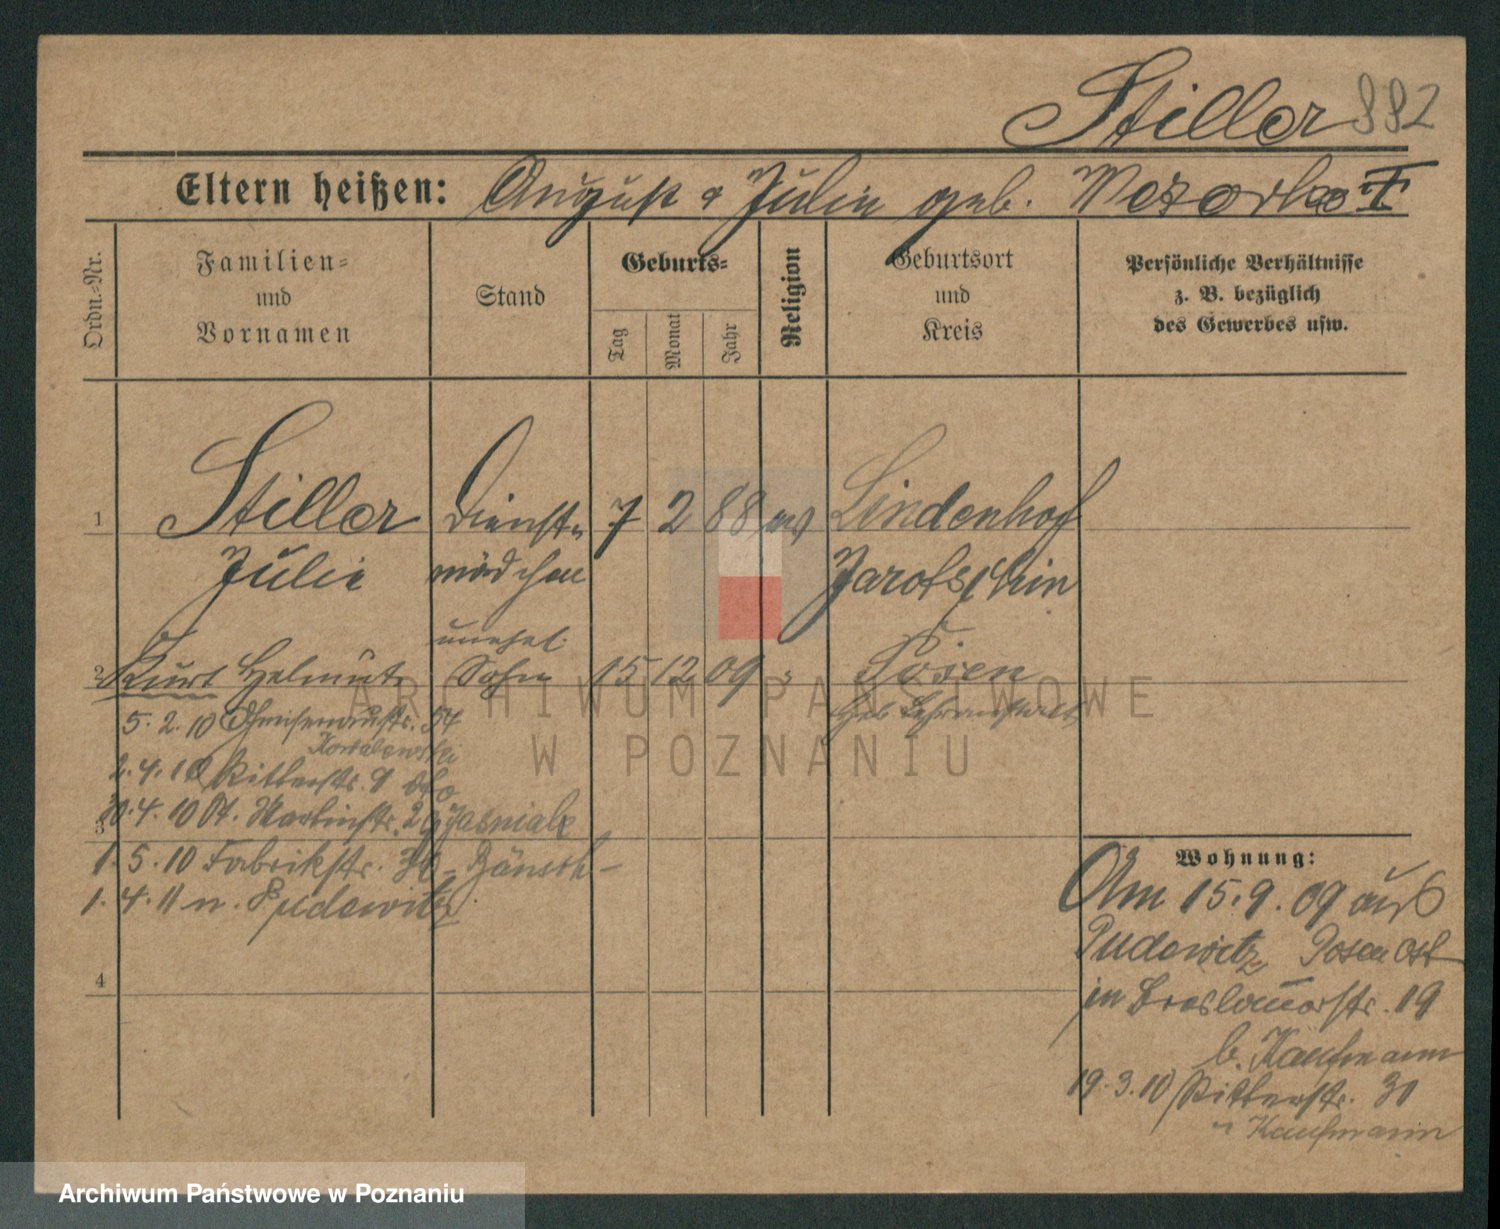 Stiller 882
Eltern heißen: August & Julie geb.
Ordn.-Nr.
Familien-
und
Vornamen
Stand
Geburts-
Tag
Monat
Jahr
Religion
Geburtsort
und
Kreis
Persönliche Verhältnisse
z. B. bezüglich
des Gewerbes usw.
1 Stiller Dienst- 7 2 88 ev Lindenhof
Julie mädchen Jarotschin
unehel.
2 Kurt Helmut Sohn 15 12 09 Posen
5.2.10 Gneisenaustr. 54
2.4.10 Ritterstr. 9
30.4.10 St. Martinstr. Jasniak
3
1.5.10 Fabrikstr. 36 - Bänsch -
1.4.11 n. Pudewitz
4
Wohnung:
Am 15.9.09 aus
Pudewitz Posen Ost
in Breslauerstr. 19
b. Kaufmann
19.3.10 Ritterstr. 31
Kaufmann
ARCHIWUM PAŃSTWOWE
W POZNANIU
Archiwum Państwowe w Poznaniu